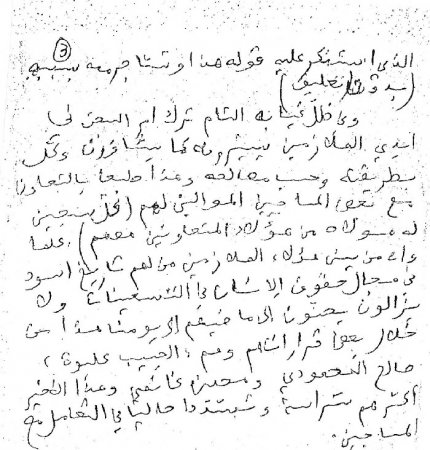 ③
الذي استنكر عليه قوله هذا وتشاجر معه بسببه
(بدون تعليق)
وفي ظل غيابه التام ترك أمر السجن في
أيدي الملازمين يسيرونه كما يشاؤون وكل
بطريقته وحسب مصالحه وهذا طبعا بالتعاون
مع بعض المساجين الموالين لهم (فكل سجين
له مسؤولة من هؤلاء المتعاونين معهم) علما
وأن من بين هؤلاء الملازمين من لهم تاريخ أسود
في مجال حقوق الإنسان في التسعينات ولا
يزالون يحنون إلى ماضيهم إلى يومنا هذا من
خلال بعض قراراتهم وهم : الحبيب عليوة ،
صالح المحمودي ومعز وهذا الأخير
أكثرهم شراسة وتشددا حاليا في التعامل مع
المساجين .